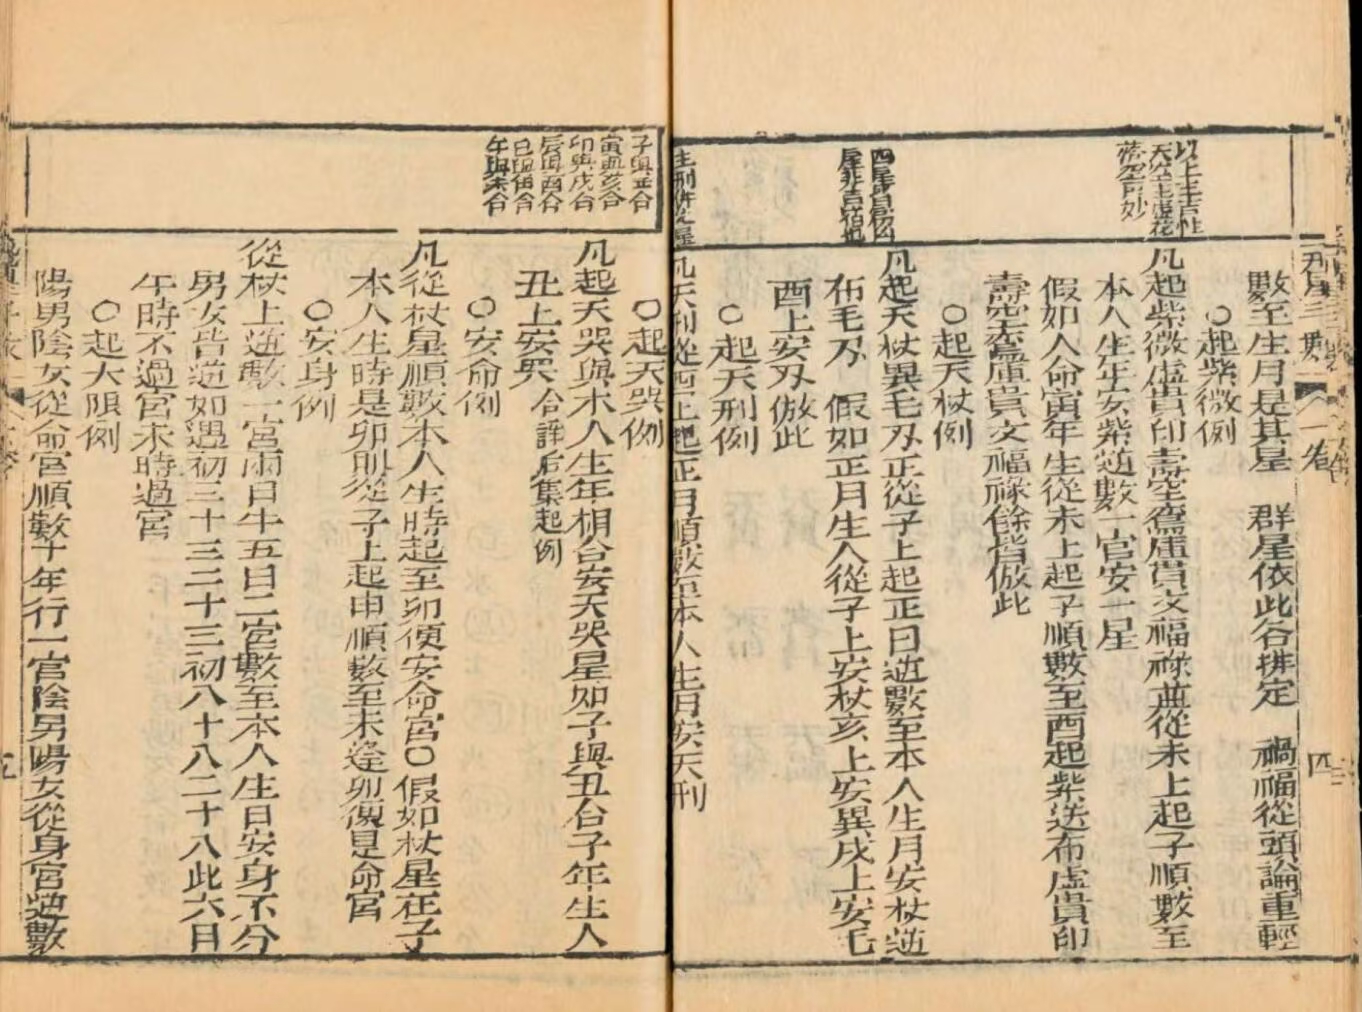 以上主吉性
數至生月是其星　群星依此各排定　禍福從頭論重輕
○起紫微例
凡起紫微虛貴印壽空鸞庫貫文福祿並從未上起子順數至
本人生年安紫逆數一宮安一星
假如人命寅年生從未上起子順數至酉起紫逆布虛貴印
壽空鸞庫貫文福祿餘皆倣此
○起天杖例
凡起天杖異毛刃正從子上起正月逆數至本人生月安杖逆
布毛刃　假如正月生人從子上安杖亥上安異戌上安毛
酉上安刃倣此
○起天刑例
凡天刑從酉上起正月順數至本人生月安天刑
子與丑合
寅與亥合
卯與戌合
辰與酉合
巳與申合
午與未合
○起天哭例
凡起天哭與本人生年相合安天哭星如子與丑合子年生人
丑上安哭合詳后集起例
○安命例
凡從杖星順數本人生時起至卯便安命宮○假如杖星在子
本人生時是卯即從子上起申順數至未逢卯便是命宮
○安身例
從杖上逆數一宮兩日半五日二宮數至本人生日安身不分
男女皆逆如遇初三十三二十三初八十八二十八此六日
午時不過宮未時過宮
○起大限例
陽男陰女從命宮順數十年行一宮陰男陽女從身宮逆數
五